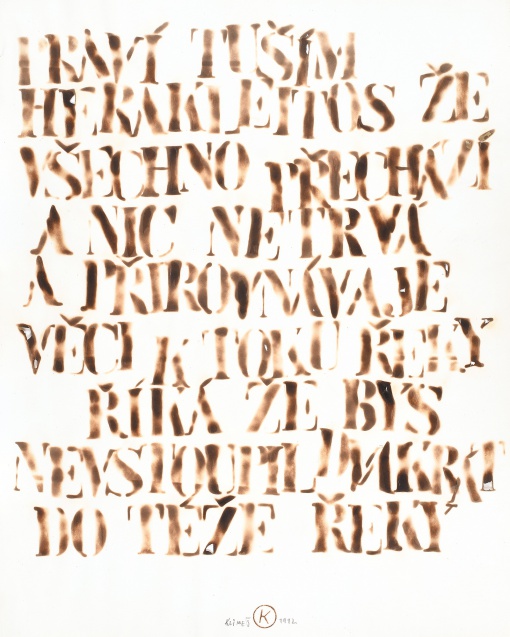 PRAVÍ TUŠÍM
HERAKLEITOS ŽE
VŠECHNO PŘECHÁZÍ
A NIC NETRVÁ
A PŘIROVNÁVAJE
VĚCI K TOKU ŘEKY
ŘÍKÁ ŽE BYS
NEVSTOUPIL DVAKRÁT
DO TÉŽE ŘEKY
K 1992